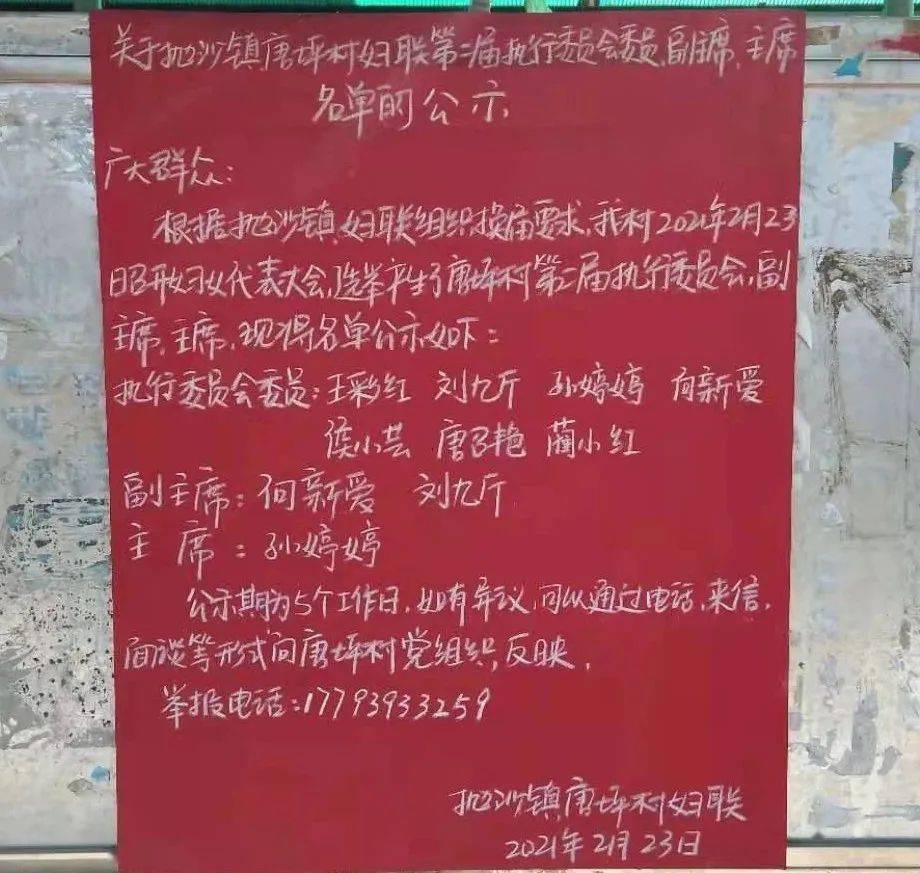 关于抛沙镇唐坪村妇联第二届执行委员会委员、副主席、主席
名单的公示
广大群众:
根据抛沙镇妇联组织换届要求,我村2021年2月23
日召开妇女代表大会,选举产生了唐坪村第二届执行委员会,副
主席、主席,现将名单公示如下:
执行委员会委员:王彩红 刘九斤 孙婷婷 何新爱
侯小芸 唐 艳 蔺小红
副主席:何新爱 刘九斤
主席:孙婷婷
公示期为5个工作日,如有异议,可以通过电话、来信、
面谈等形式向唐坪村党组织,反映。
举报电话:17793933259
抛沙镇唐坪村妇联
2021年2月23日